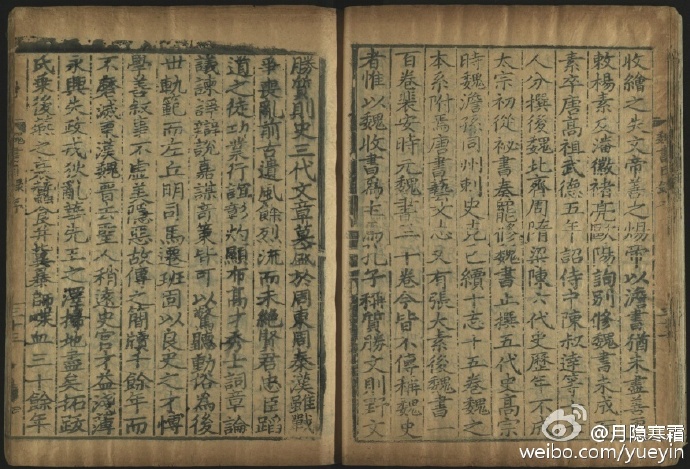 收繪之失文帝善之煬帝以澹書猶未盡善更
敕楊素及潘徽褚亮歐陽詢別修魏書未成而
素卒唐高祖武德五年詔侍中陳叔達等十七
人分撰後魏北齊周隋梁陳六代史歷年不成
太宗初從祕書奏罷修魏書止撰五代史高宗
時魏澹孫同州刺史克己續十志十五卷魏之
本系附焉唐書藝文志又有張大素後魏書一
百卷裴安時元魏書三十卷今皆不傳稱魏史
者惟以魏收書為主焉孔子稱質勝文則野文
勝質則史三代文章莫盛於周東周秦漢雖戰
爭喪亂前古遺風餘烈流而未絕賢君忠臣蹈
道之徒功業行誼彰灼顯布高才秀士詞章論
議諫諍辯說嘉謀奇策皆可以驚聽動俗為後
世軌範而左丘明司馬遷班固以良史之才博
學善敘事不虛美隱惡故傳之簡牘千餘年而
不磨滅東漢魏晉去聖人稍遠史官才益淺薄
永興失政戎狄亂華先王之澤掃地盡矣拓跋
氏乘後燕之衰蠶食并冀暴師喋血三十餘年
@月隐寒霜
weibo.com/yueyin